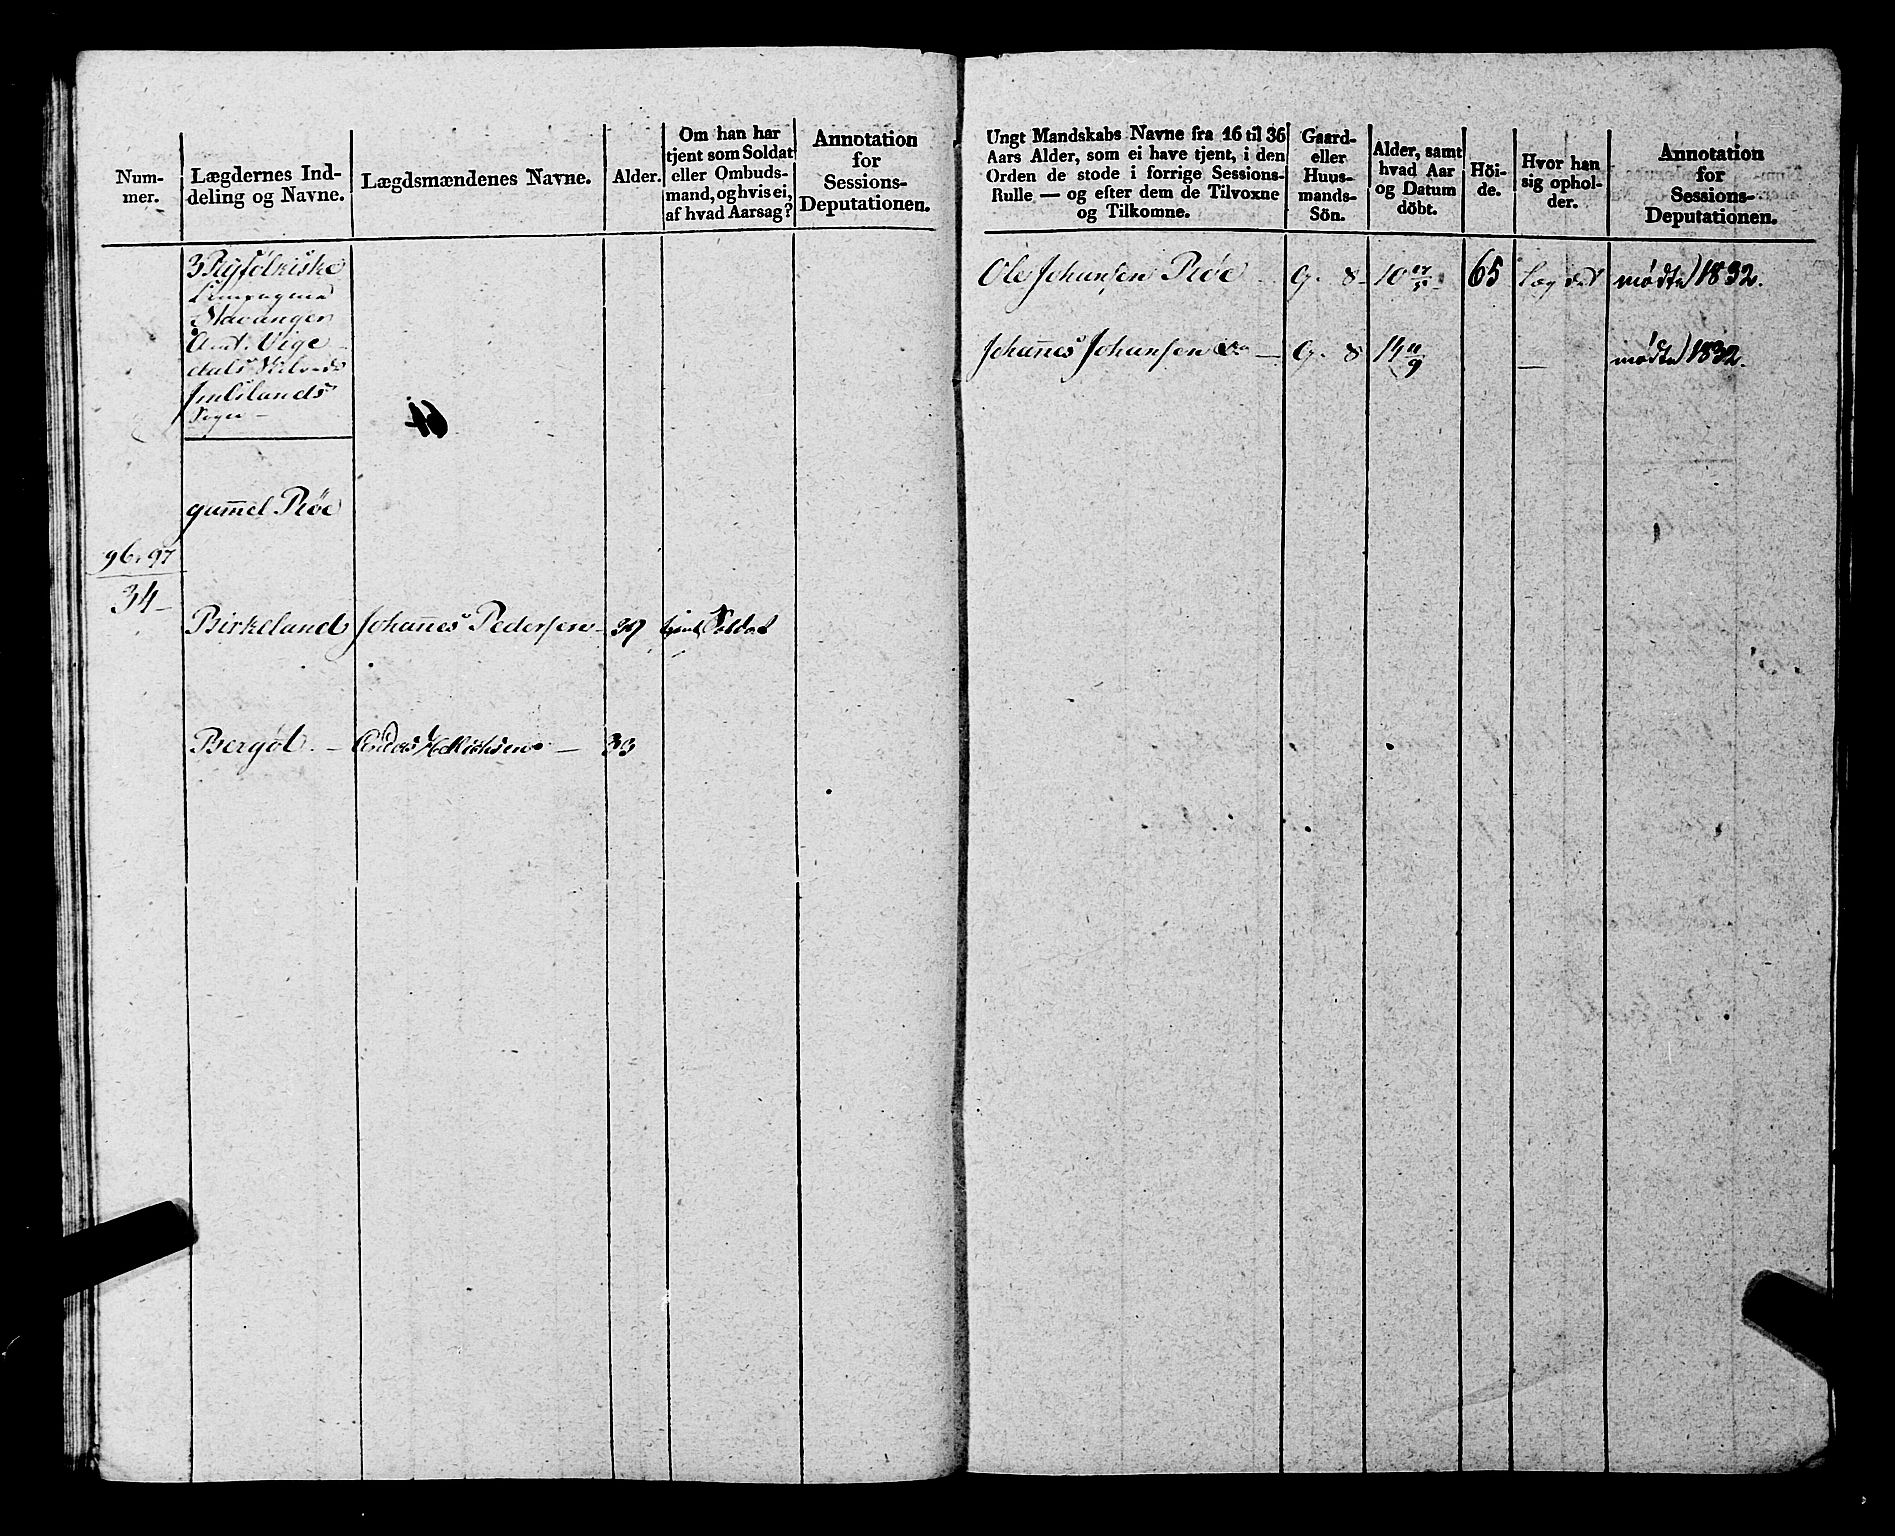 Num-
mer.
Lægdernes Ind-
deling og Navne.
Lægdsmændenes Navne.
Alder.
Om han har
tjent som Soldat
eller Ombuds-
mand, og hvis ei,
af hvad Aarsag?
Annotation
for
Sessions-
Deputationen.
3 Ryfølkiske
Compagnie
Stavanger
Amt. Vige
dals Skibrede
Imslands
Sogn
64
gam̄el Røe
96. 97
34
Birkeland Johan̄es Pedersen 39 tjent Soldat
Bergøl 33
Ungt Mandskabs Navne fra 16 til 36
Aars Alder, som ei have tjent, i den
Orden de stode i forrige Sessions-
Rulle — og efter dem de Tilvoxne
og Tilkomne.
Gaard-
eller
Huus-
mands-
Sön.
Alder, samt
hvad Aar
og Datum
döbt.
Höi-
de.
Hvor han
sig ophol-
der.
Annotation
for
Sessions-
Deputationen.
Ole Johansen Røe G. 8 10 65 Lægdet mødte 1832.
Johan̄es Johansen — G. 8 14 11/9 — mødte 1832.